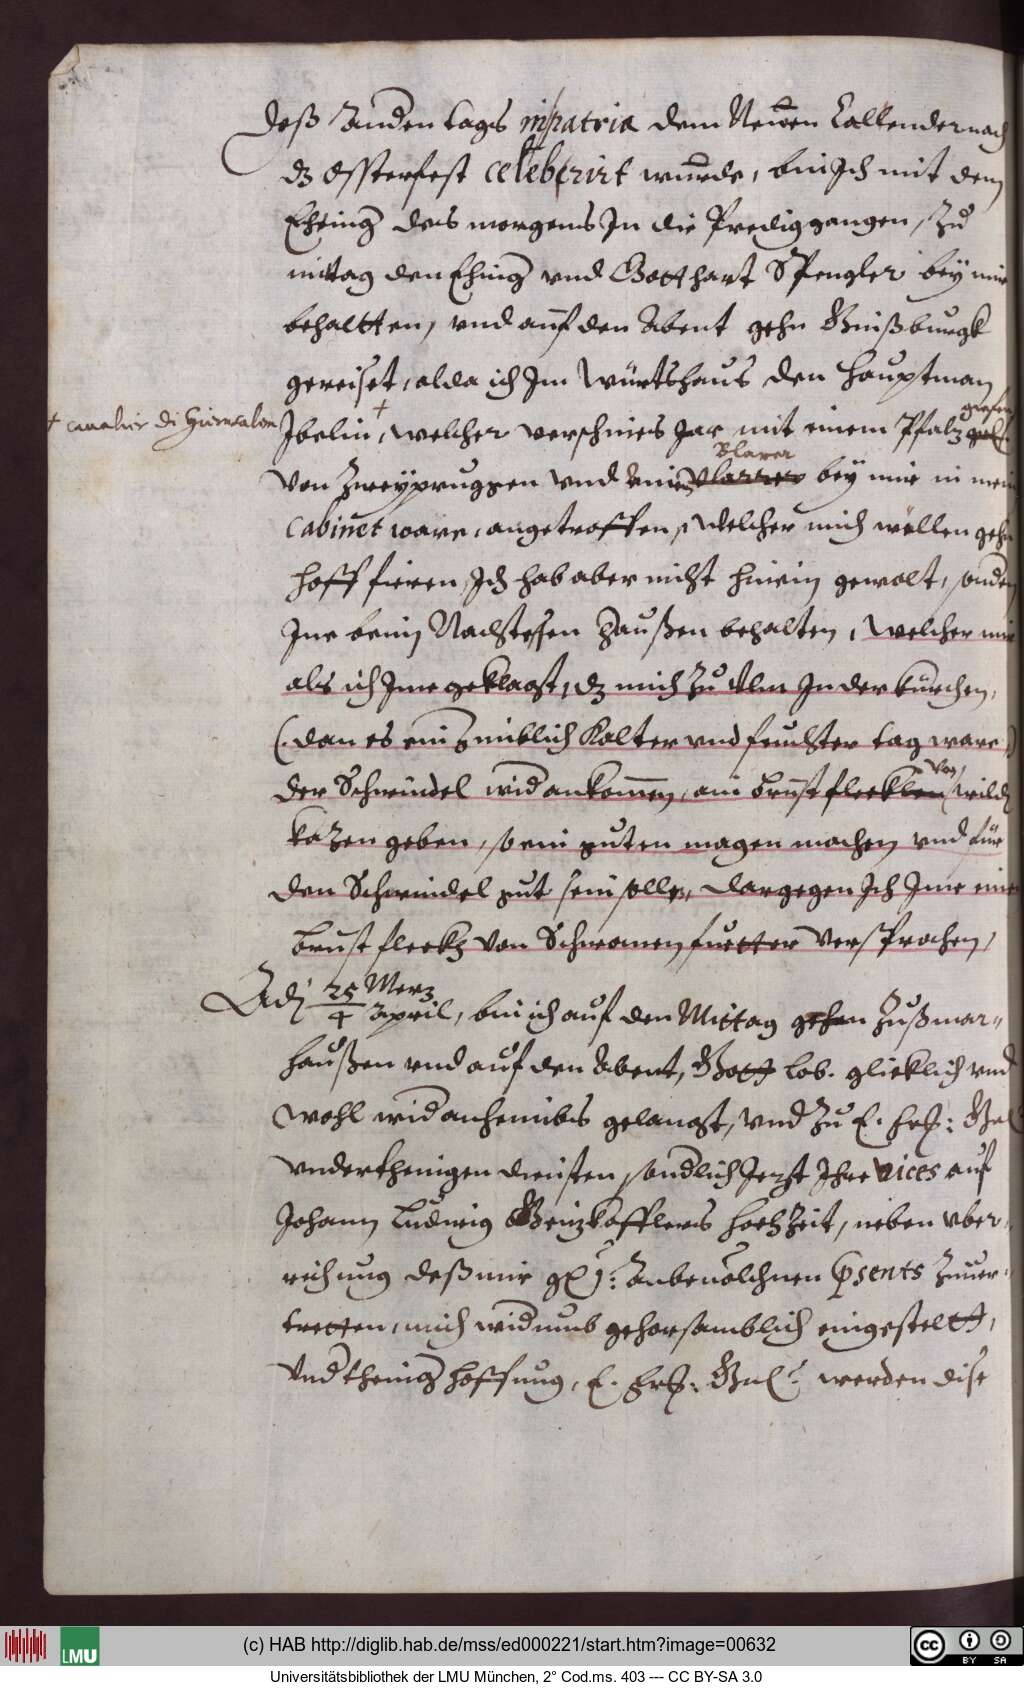 deß andern tags in patria dem Newen Callender nach
dz Ossterfest celebrirt wurde, bin Ich mit dem
Eheing des morgens In die Predig gangen, Zu
mittag den Ehing vnd Gotthart Spengler bey mir
behaltten, vnd auff den Abent gehn Ginßburgk
gereiset, alda ich Im Würtshaus den Hauptman
+ caualier di Hierusalem
Ibelin, + welcher verschines Jar mit einem Pfalzgrafen
von Zweyprugken vnd einem Blarer bey mir in mein
Cabinet ware, angetroffen, Welcher mich wöllen gehn
hoff fieren, Ich hab aber nicht hinein gewolt, sonder
Ine beim Nachtessen heraußen behalten, Welcher mir
als ich Ime geklagt, dz mich Zu Ulm In der kürchen,
(dan es ein zimblich kalter vnd feuchter tag ware)
der Schwindel wider ankommen, ain brust fleckh von wilden
kazen geben, so ein guten magen machen vnd für
den Schwindel gut sein solle, dargegen Ich Ime einen
brustfleckh von Schwanen fuetter versprochen,
Adj 25 Merz
4 April, bin ich auf den Mittag gehen Zußmar=
haußen vnd auf den Abent, Gott lob. glicklich vnd
wohl wider anheimbs gelangt, vnd Zu E. Frl: Gn
vnderthenigen diensten, sonderlich Jezt Ihre vices auf
Johann Ludwig Geizkofflers hochZeit, neben vber=
reichung deß mir anbeuolchnen Presents Zuuer=
tretten, mich widerumb gehorsamblich eingestellt,
Vnderthenig hoffnung, E. Frl: Gn: werden dise
(c) HAB http://diglib.hab.de/mss/ed000221/start.htm?image=00632
LMU
cc BY SA
Universitätsbibliothek der LMU München, 2° Cod.ms. 403 --- CC BY-SA 3.0